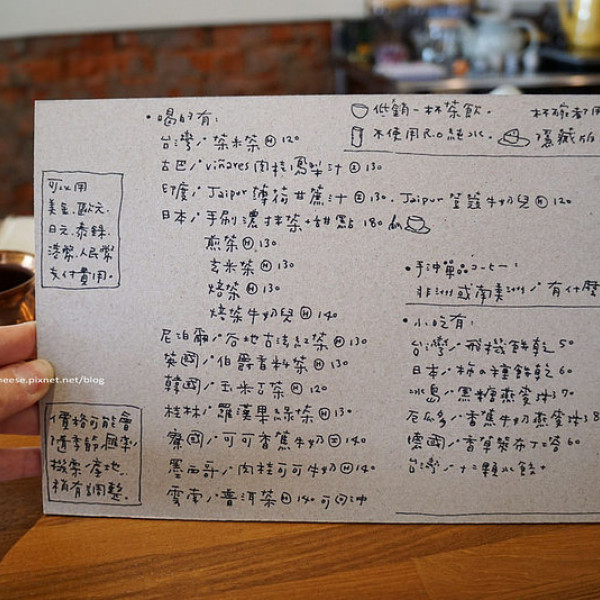 • 喝的有:
台灣/茶米茶 H 120
古巴/viñares 肉桂鳳梨汁 I 130
印度/Jaipur 薄荷甘蔗汁 I 130. Jaipur 荳蔻牛奶兒 H 120
日本/手刷濃抹茶+甜點 180
煎茶 H 130
玄米茶 H 130
焙茶 H 130
焙茶牛奶兒 H 140
尼泊爾/谷地古法紅茶 H 130
英國/伯爵香料茶 H 130
韓國/玉米茶 H 120
桂林/羅漢果綠茶 H 130
寮國/可可香蕉牛奶 I 140
墨西哥/肉桂可可牛奶 H 140
雲南/普洱茶 H 140 可回沖
可以用
美金.歐元.
日元.泰銖.
港幣.人民幣
支付費用。
價格可能會
隨季節.匯率/
檔案/產地.
稍有調整。
低銷一杯茶飲.
不使用R.O純水.
隱藏版
• 手沖單品コーヒー:
非洲或南美洲/有什麼
• 小吃有:
台灣/飛機餅乾 50
日本/柿の種餅乾 60
冰島/黑糖燕麥 70
厄瓜多/香蕉牛奶燕麥
德國/香草築布丁塔 60
台灣/十二顆水餃.
eese.pixnet.net/blog